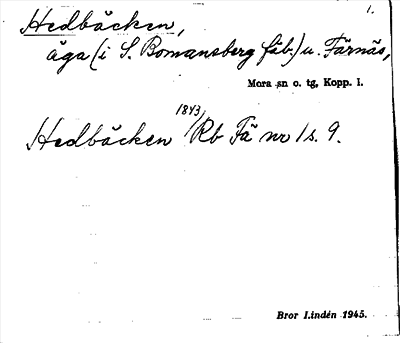 Hedbäcken, 1.
äga (i S. Bomansberg fäb.) u. Färnäs,
Mora sn o. tg, Kopp. l.
Hedbäcken 1843/Rb Fä nr 1 s. 9.
Bror Lindén 1945.